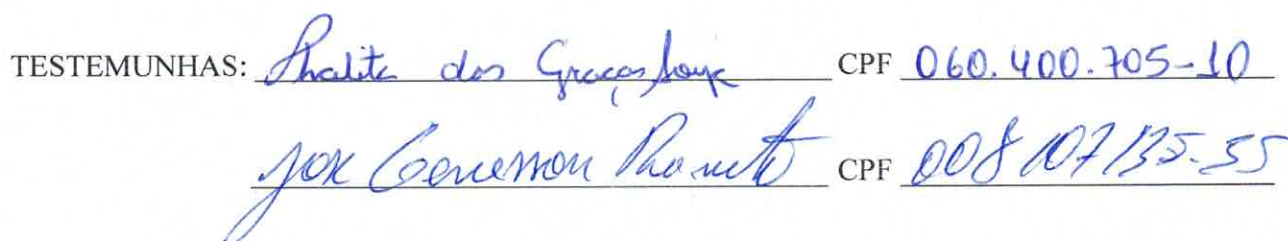 TESTEMUNHAS: Thalita das Graças Souza CPF 060.400.705-10
CPF 008107135-55